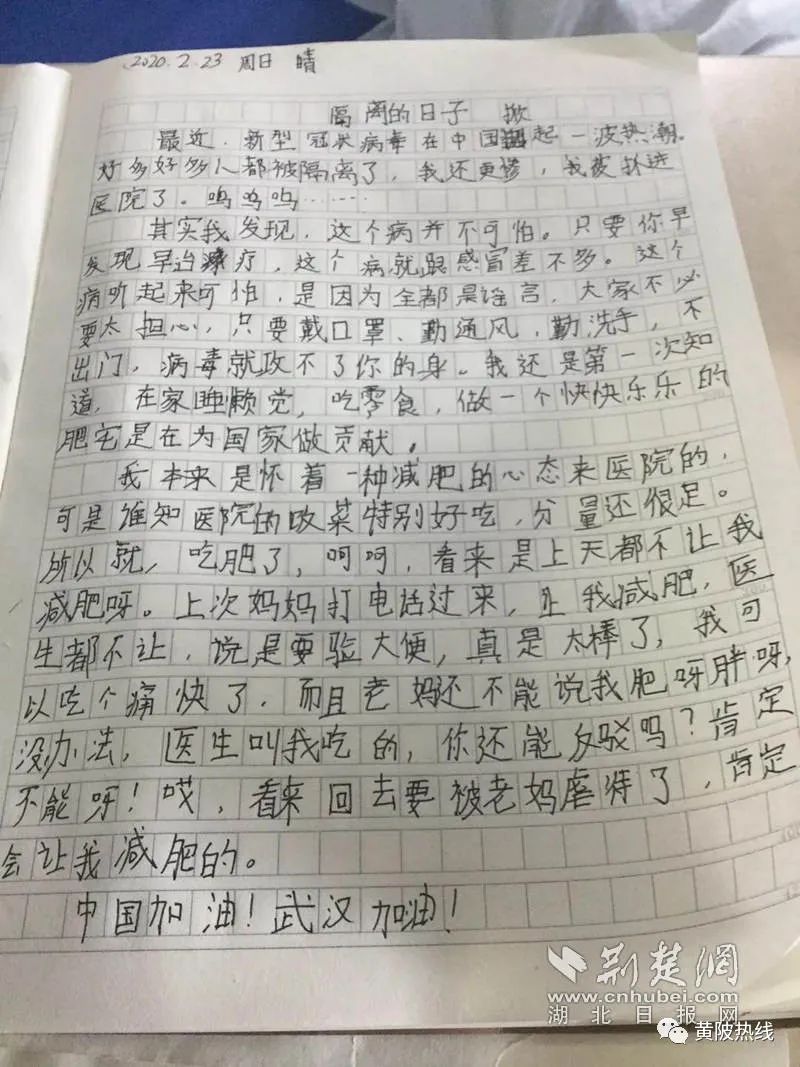 2020.2.23 周日 晴
隔离的日子 掀
最近,新型冠状病毒在中国起一波热潮。
好多好多人都被隔离了,我还更惨,我被抓进
医院了。呜呜呜……
其实我发现,这个病并不可怕。只要你早
发现早治疗,这个病就跟感冒差不多。这个
病听起来可怕,是因为全都是谣言,大家不必
要太担心,只要戴口罩、勤通风,勤洗手,不
出门,病毒就攻不了你的身。我还是第一次知
道,在家睡懒觉,吃零食,做一个快快乐乐的
肥宅是在为国家做贡献。
我本来是怀着一种减肥的心态来医院的,
可是谁知医院的饭菜特别好吃,分量还很足。
所以就,吃肥了,呵呵,看来是上天都不让我
减肥呀。上次妈妈打电话过来,让我减肥,医
生都不让,说是要验大便,真是太棒了,我可
以吃个痛快了,而且老妈还不能说我肥呀胖呀,
没办法,医生叫我吃的,你还能反驳吗?肯定
不能呀!哎,看来回去要被老妈虐待了,肯定
会让我减肥的。
中国加油!武汉加油!
荆楚网
www.cnhubei.com
湖北日报网
黄陂热线